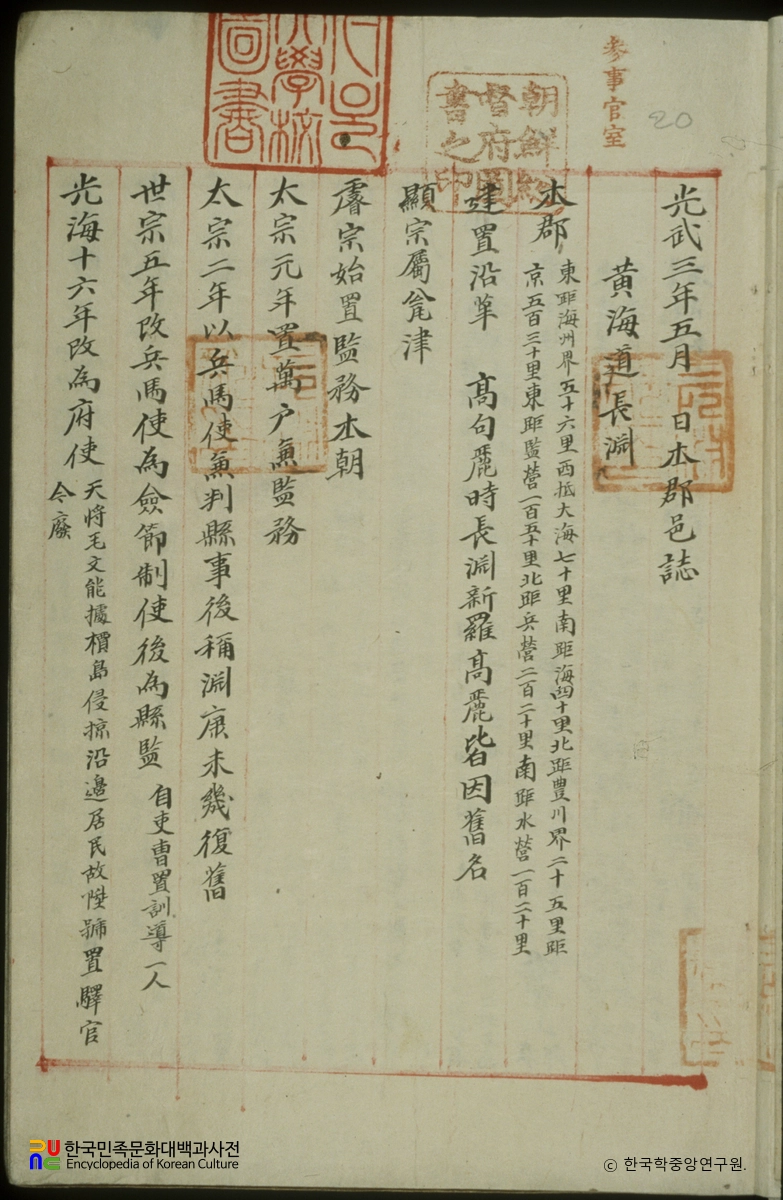 光武三年五月 日本郡邑誌
黃海道長淵
本郡 東距海州界五十六里西抵大海七十里南距海四十里北距豊川界二十五里距
京五百三十里東距監營一百五十里北距兵營二百二十里南距水營一百二十里
建置沿革 高句麗時長淵新羅高麗皆因舊名
顯宗屬瓮津
睿宗始置監務本朝
太宗元年置萬户兼監務
太宗二年以兵馬使兼判縣事後稱淵康未幾復舊
世宗五年改兵馬使為僉節制使後為縣監 自吏曹置訓導一人
光海十六年改為府使 天將毛文龍據椵島侵掠沿邊居民故陞號置驛官
今廢
參事官室
20
朝鮮總
督府圖
書之印
大學校
圖書
한국민족문화대백과사전
Encyclopedia of Korean Culture
© 한국학중앙연구원.